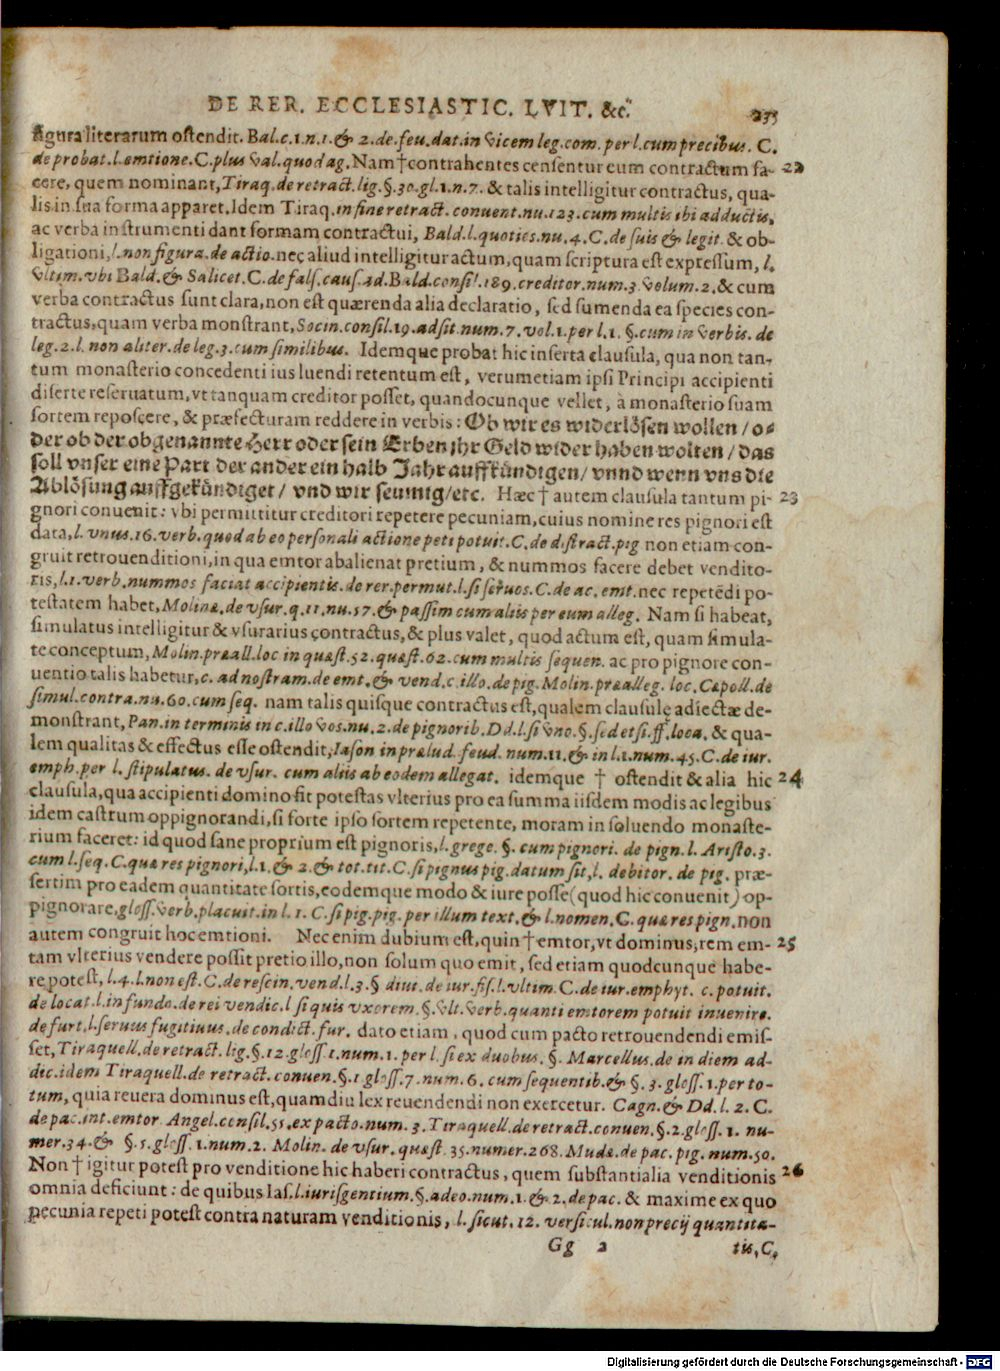 DE RER. ECCLESIASTIC. LVIT. &c. 235
figura literarum ostendit. Bal.c.1.n.1.& 2.de.feu.dat.in vicem leg.com.per l.cum precibus. C.
de probat.l.emtione.C.plus val.quod ag. Nam†contrahentes censentur eum contractum fa- 22
cere, quem nominant, Tiraq.de retract.lig.§.30.gl.1.n.7. & talis intelligitur contractus, qua-
lis in sua forma apparet. Idem Tiraq. in fine retract. conuent.nu.123.cum multis ibi adductis,
ac verba instrumenti dant formam contractui, Bald.l.quoties.nu.4.C.de suis & legit. & ob-
ligationi, l.non figura.de actio. nec aliud intelligitur actum, quam scriptura est expressum, l.
vltim.vbi Bald.& Salicet.C.de fals.caus.ad.Bald.consil.189.creditor.num.3.volum.2.& cum
verba contractus sunt clara, non est quærenda alia declaratio, sed sumenda ea species con-
tractus, quam verba monstrant, Socin.consil.19.adsit.num.7.vol.1.per l.1. §.cum in verbis.de
leg.2.l.non aliter.de leg.3.cum similibus. Idemque probat hic inserta clausula, qua non tan-
tum monasterio concedenti ius luendi retentum est, verumetiam ipsi Principi accipienti
diserte reseruatum, vt tanquam creditor posset, quandocunque vellet, à monasterio suam
sortem reposcere, & præfecturam reddere in verbis: Ob wir es widerlösen wollen / o-
der ob der obgenannte Herr oder sein Erben ihr Geld wider haben wolten / das
soll vnser eine Part der ander ein halb Jahr auffkündigen / vnnd wenn vns die
Ablösung auffgekündiget / vnd wir seumig / etc. Hæc † autem clausula tantum pi- 23
gnori conuenit: vbi permittitur creditori repetere pecuniam, cuius nomine res pignori est
data, l.vnus.16.verb.quod ab eo personali actione peti potuit.C.de distract.pig non etiam con-
gruit retrouenditioni, in qua emtor abalienat pretium, & nummos facere debet vendito-
ris, l.1.verb.nummos faciat accipientis.de rer.permut.l.si seruos.C.de ac.emt. nec repetēdi po-
testatem habet, Molinæ.de vsur.q.11.nu.57.& passim cum aliis per eum alleg. Nam si habeat,
simulatus intelligitur & vsurarius contractus, & plus valet, quod actum est, quam simula-
te conceptum, Molin.præall.loc in quæst.52.quæst.62.cum multis sequen. ac pro pignore con-
uentio talis habetur, c. ad nostram.de emt.& vend.c.illo.de pig.Molin.præalleg. loc. Capoll.de
simul.contra.nu.60.cum seq. nam talis quisque contractus est, qualem clausulę adiectæ de-
monstrant, Pan.in terminis in c.illo vos.nu.2.de pignorib.Dd.l.si vno.§.sed etsi.ff.loca. & qua-
lem qualitas & effectus esse ostendit, Iason in prælud.feud.num.11.& in l.1.num.45.C.de iur.
emph.per l.stipulatus. de vsur. cum aliis ab eodem allegat. idemque † ostendit & alia hic 24
clausula, qua accipienti domino fit potestas vlterius pro ea summa iisdem modis ac legibus
idem castrum oppignorandi, si forte ipso sortem repetente, moram in soluendo monaste-
rium faceret: id quod sane proprium est pignoris, l.grege. §. cum pignori. de pign.l. Aristo.3.
cum l.seq.C.quæ res pignori, l.1.& 2.& tot.tit.C.si pignus pig.datum sit, l. debitor. de pig. præ-
sertim pro eadem quantitate sortis, eodemque modo & iure posse (quod hic conuenit) op-
pignorare, gloss.verb.placuit.in l.1. C.si pig.pig.per illum text.& l.nomen.C. quæ res pign. non
autem congruit hoc emtioni. Nec enim dubium est, quin † emtor, vt dominus, rem em- 25
tam vlterius vendere possit pretio illo, non solum quo emit, sed etiam quodcunque habe-
re potest, l.4.l.non est.C.de rescin.vend.l.3.§ diui.de iur.fis.l.vltim.C.de iur.emphyt. c. potuit.
de locat.l.in fundo.de rei vendic.l si quis vxorem.§.vlt.verb.quanti emtorem potuit inuenire.
de furt.l.seruus fugitiuus.de condict.fur. dato etiam, quod cum pacto retrouendendi emis-
set, Tiraquell.de retract.lig.§.12.gloss.1.num.1.per l.si ex duobus.§. Marcellus.de in diem ad-
dic.idem Tiraquell.de retract.conuen.§.1 gloss.7.num.6.cum sequentib.& §.3.gloss.1.per to-
tum, quia reuera dominus est, quamdiu lex reuendendi non exercetur. Cagn.& Dd.l. 2. C.
de pac.int.emtor. Angel.consil.51.ex pacto.num.3. Tiraquell.de retract.conuen.§.2.gloss.1. nu-
mer.34.& §.5.gloss.1.num.2. Molin.de vsur.quæst.35.numer.268.Mudæ.de pac.pig.num.50.
Non † igitur potest pro venditione hic haberi contractus, quem substantialia venditionis 26
omnia deficiunt: de quibus Ias.l.iurisgentium.§.adeo.num.1.& 2.de pac. & maxime ex quo
pecunia repeti potest contra naturam venditionis, l.sicut.12. versicul.non precij quantita-
Gg 2 tis, C.
Digitalisierung gefördert durch die Deutsche Forschungsgemeinschaft - DFG